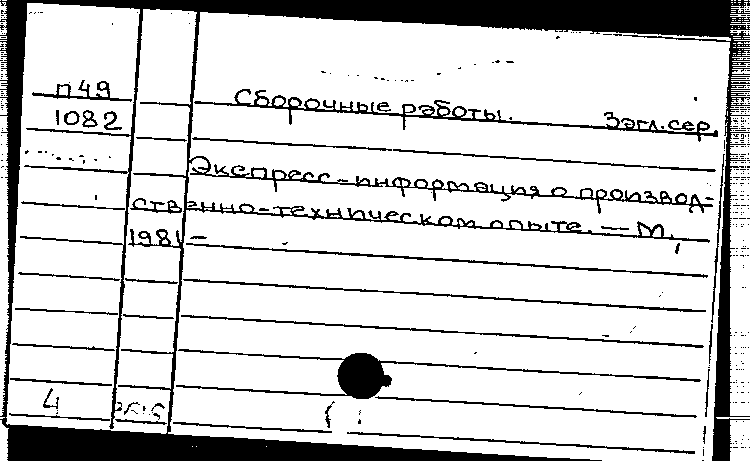 П49 Сборочные работы. Загл.сер.
1082
Экспресс-информация о производ-
ственно-техническом опыте. — М.,
1981 –
4